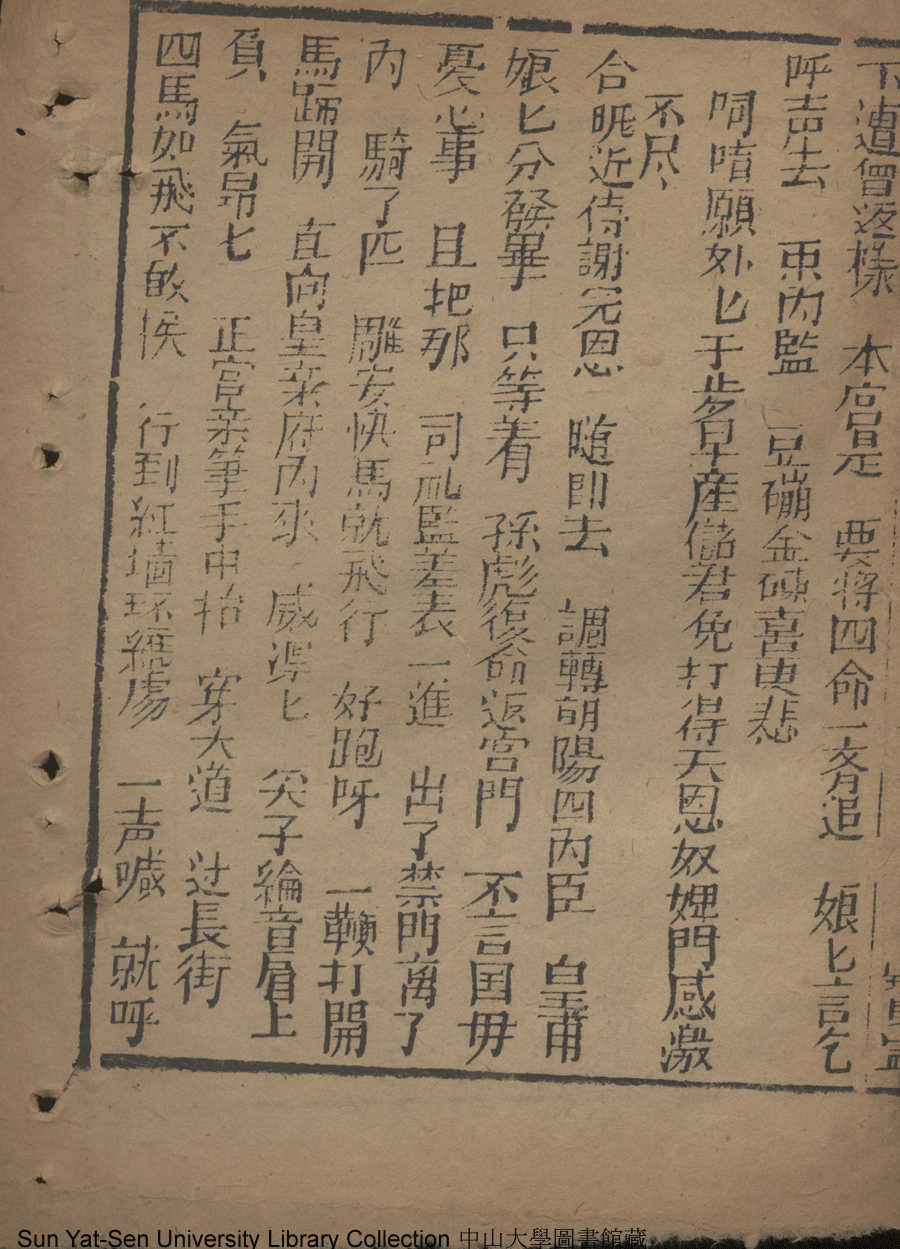 下遭曾返樣　本宮是　要將四命一齐追　娘匕言乞
呼声去　東内監　豆磞金磚喜更悲
哃唶願外匕于步早產儲君免打得天恩奴婢門感激
不尽
合昵近侍謝完恩　随即去　調轉胡陽四内臣　皇甫
娘匕分發畢　只等着　孫彪復命返宮門　不言国母
憂心事　且把那　司礼監差表一進　出了禁門离了
内　騎了匹　雕安快馬就飛行　好跑呀　一鞭打開
馬蹄開　直向皇亲府内來　威凛匕　尖子綸音肩上
負　氣昂匕　正宮亲筆手中抬　穿大道　过長街
四馬如飛不敢俟　行到紅墙环繞處　一声喊　就呼
Sun Yat-Sen University Library Collection 中山大學圖書館藏